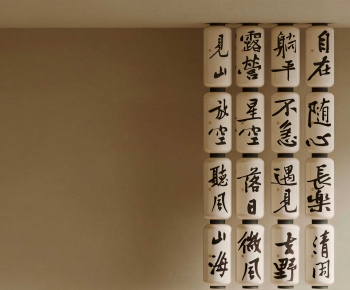 自在
随心
長樂
清闲
躺平
不急
遇見
去野
露營
星空
落日
微风
見山
放空
聽风
山海